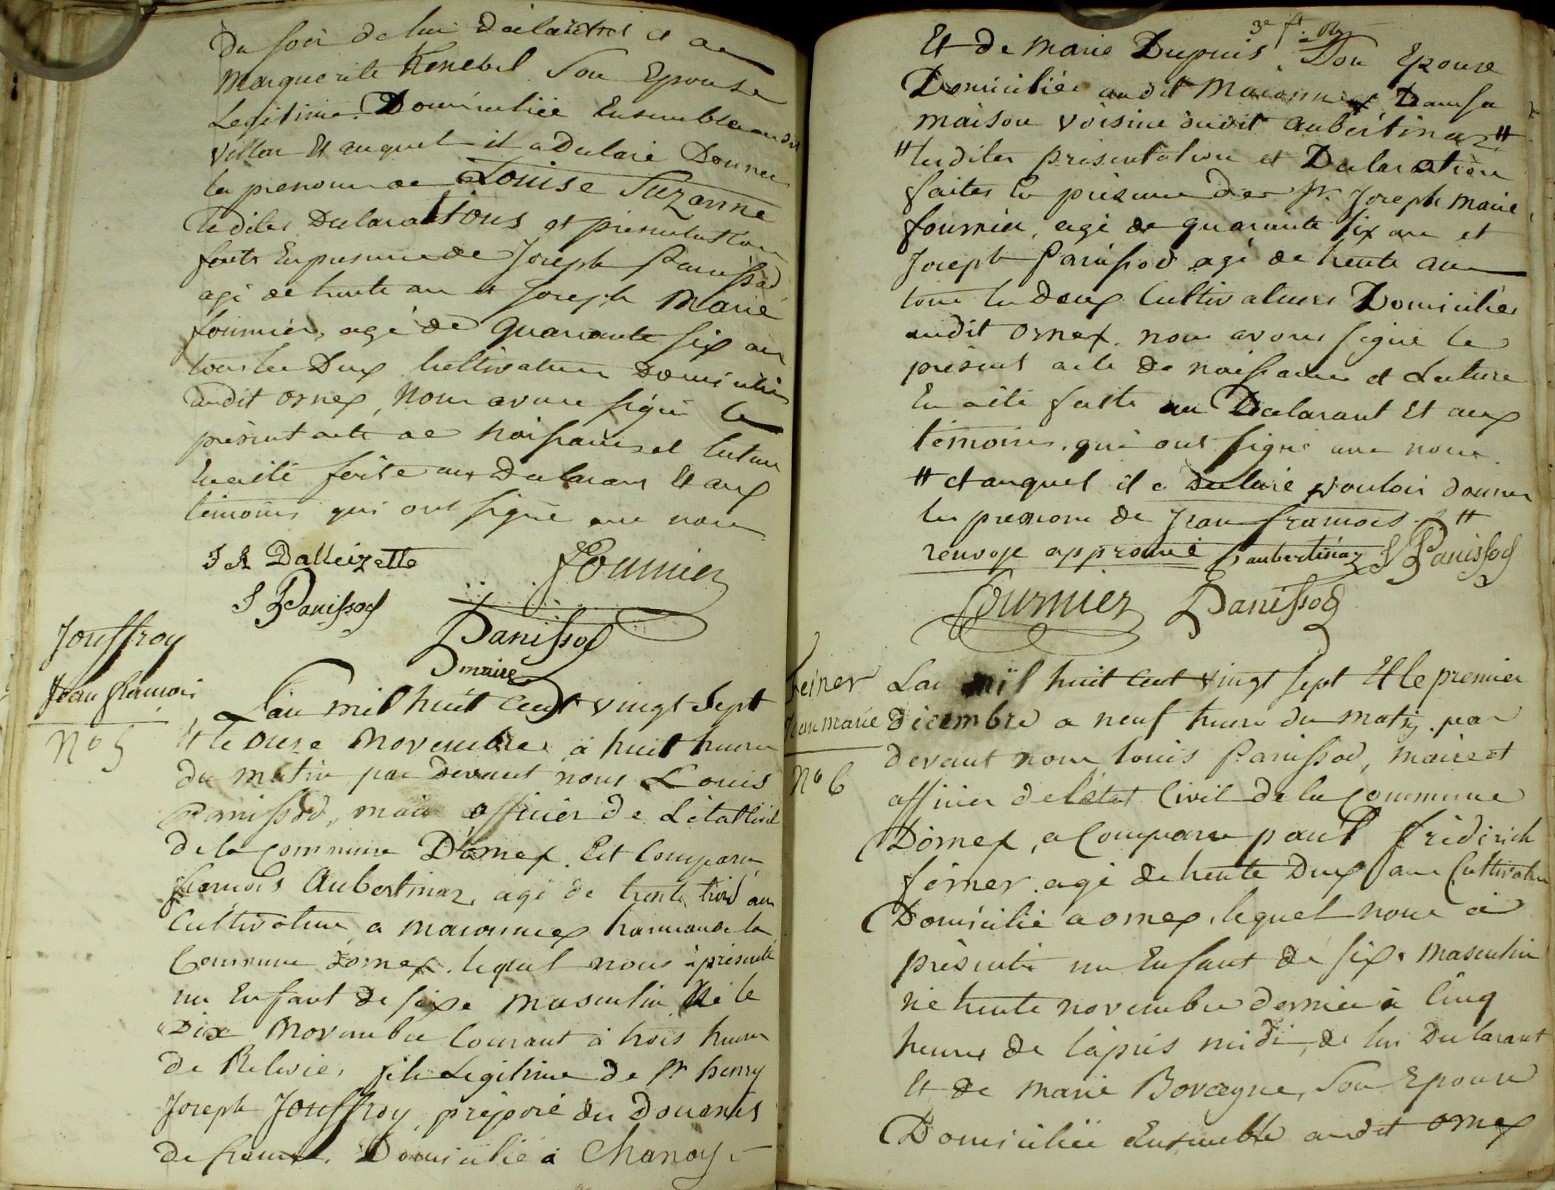 Du soir de lui déclarant et de
Marguerite Kenebel Son Epouse
Legitime. Domiciliée Ensemble audit
Et auquel il a Declaré Donner
les prenoms de Louise Suzanne
lesdites Declarations et présentation
faite En presence de Joseph Panissod
agé de trente ans et Joseph Marie
fournier, agé de quarante six ans
tous les Deux Cultivateurs Domiciliés
audit ornex, Nous avons signé le
présent acte de Naissance et lecture
En a été faite aux Declarant Et aux
témoins qui ont signé avec nous
Dalleizette
Fournier
J Panissod
Panissod
maire
Jouffroy
Jean francois
N° 5
L'an mil huit Cent vingt Sept
Et le onze Novembre à huit heures
du matin par Devant nous Louis
Panissod, maire officier de L'état Civil
de la Commune D'ornex. Est Comparu
francois Aubertinaz, agé de trente trois ans
Cultivateur a maconnex hameau de la
Commune d'ornex. lequel nous a présenté
un Enfant de sexe masculin Né le
Dix Novembre Courant à trois heures
de Relevée, fils Legitime de Sr henry
Joseph Jouffroy, préposé des Douanes
de france, Domicilié à Chanay
3e ft
Et de marie Dupuis Son Epouse
Domiciliée audit Maconnex Dans sa
maison voisine dudit aubertinaz #
# lesdites présentation et Declaration
faites En présence des Sr. Joseph Marie
fournier, agé de quarante six ans et
Joseph Panissod agé de trente ans
tous les Deux Cultivateurs Domiciliés
audit ornex. nous avons signé le
présent acte de naissance et Lecture
En a été faite au Declarant Et aux
témoins. qui ont signé avec nous.
# et auquel il a Declaré vouloir donner
les prenoms de Jean francois. #
renvoye approuvé f aubertinaz J Panissod
Fournier Panissod
Feiner
Jean marie
N° 6
L'an mil huit cent vingt sept Et le premier
décembre a neuf heures du matin par
devant nous louis Panissod, maire et
officier de l'état Civil de la Commune
D'ornex, a Comparu paul frédérich
feiner agé de trente Deux ans Cultivateur
Domicilié a ornex, lequel nous a
présenté un Enfant de sexe masculin
né trente novembre dernier à Cinq
heures de l'après midi, de lui Declarant
Et de marie Son Epouse
Domiciliée Ensemble audit ornex